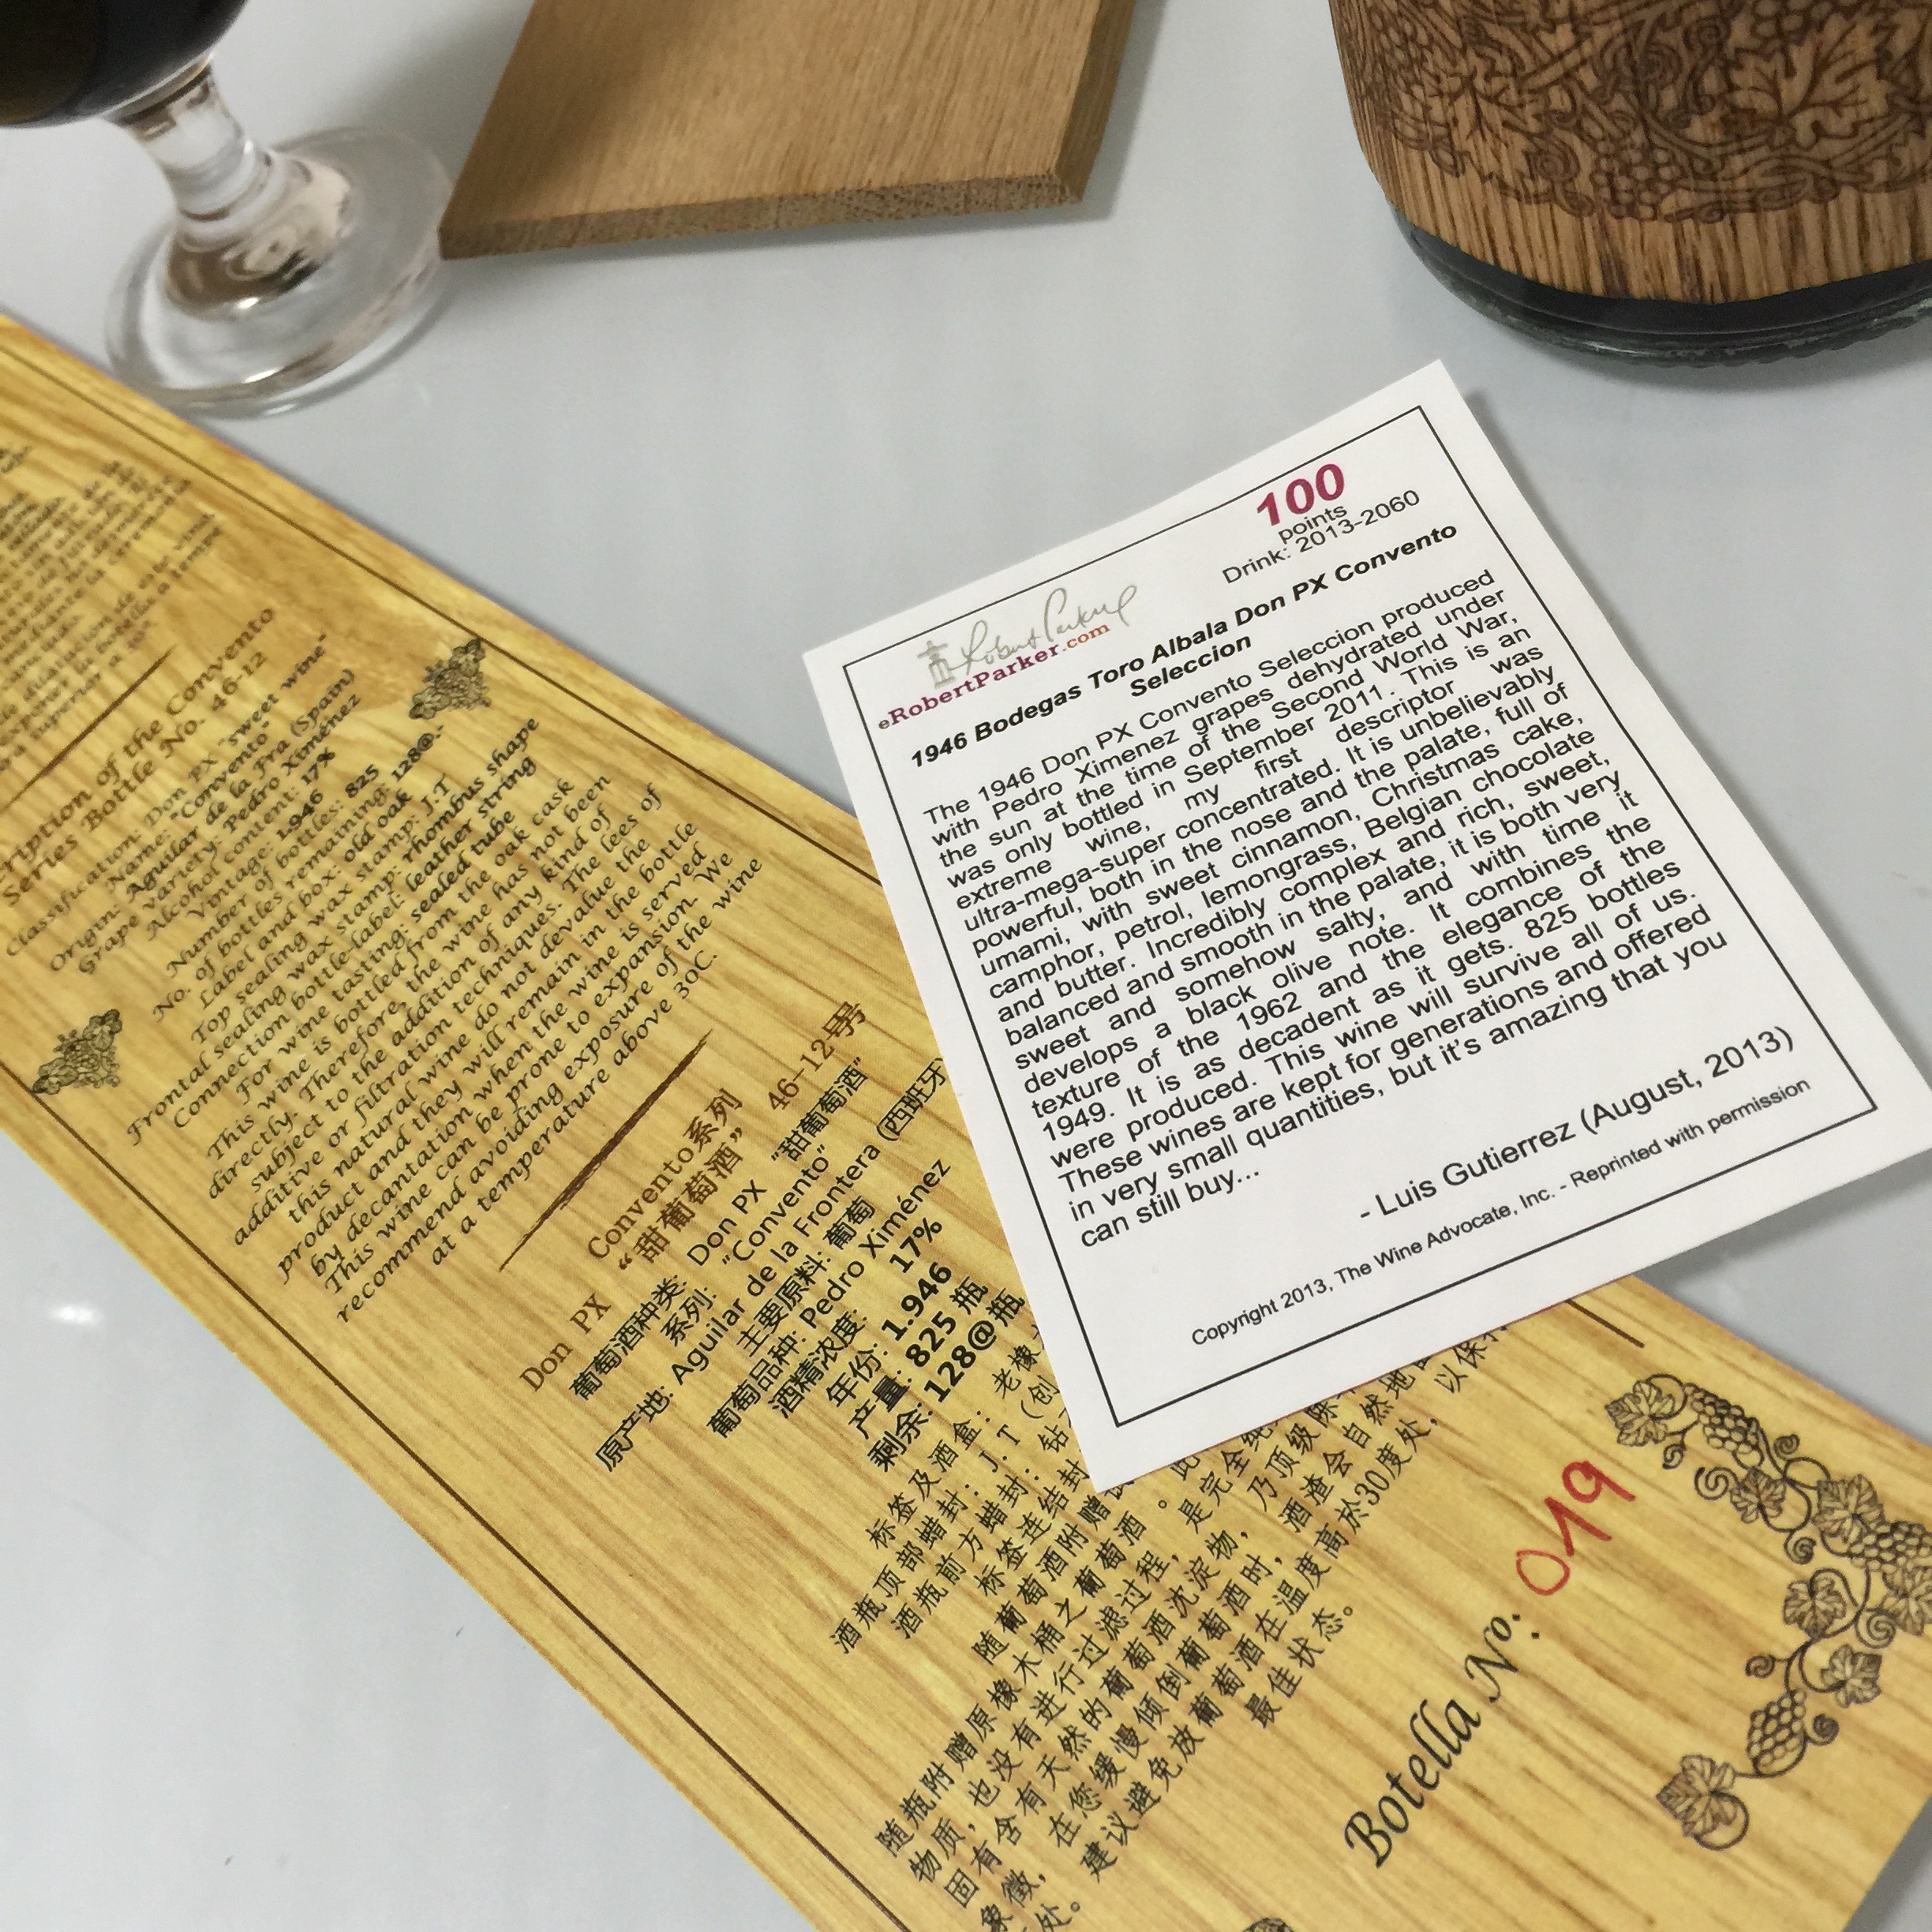 100
points
Drink: 2013-2060
Robert Parker
eRobertParker.com
1946 Bodegas Toro Albala Don PX Convento
Seleccion
The 1946 Don PX Convento Seleccion produced
with Pedro Ximenez grapes dehydrated under
the sun at the time of the Second World War,
was only bottled in September 2011. This is an
extreme wine, my first descriptor was
ultra-mega-super concentrated. It is unbelievably
powerful, both in the nose and the palate, full of
umami, with sweet cinnamon, Christmas cake,
camphor, petrol, lemongrass, Belgian chocolate
and butter. Incredibly complex and rich, sweet,
balanced and smooth in the palate, it is both very
sweet and somehow salty, and with time it
develops a black olive note. It combines the
texture of the 1962 and the elegance of the
1949. It is as decadent as it gets. 825 bottles
were produced. This wine will survive all of us.
These wines are kept for generations and offered
in very small quantities, but it's amazing that you
can still buy...
- Luis Gutierrez (August, 2013)
Copyright 2013, The Wine Advocate, Inc. - Reprinted with permission
of the Convento
Series Bottle No. 46-12
Classification: Don PX "sweet wine"
Name: "Convento"
Origin: Aguilar de la Fra (Spain)
Grape variety: Pedro Ximénez
Alcohol content: 17%
Vintage: 1946
Number of bottles: 825
No. of bottles remaining: 128@.-
Label and box: old oak
Top sealing wax stamp: J.T
Frontal sealing wax stamp: rhombus shape
Connection bottle-label: leather string
For wine tasting: sealed tube
This wine is bottled from the oak cask
directly. Therefore, the wine has not been
subject to the addition of any kind of
additive or filtration techniques. The lees of
this natural wine do not devalue the
product and they will remain in the bottle
by decantation when the wine is served
This wine can be prone to expansion. We
recommend avoiding exposure of the wine
at a temperature above 30C.
Convento系列
Don PX “甜葡萄酒” 46-12号
葡萄酒种类: Don PX "甜葡萄酒"
系列: "Convento"
原产地: Aguilar de la Frontera (西班牙
主要原料: 葡萄
葡萄品种: Pedro Ximénez
酒精浓度: 17%
年份: 1.946
产量: 825 瓶
剩余: 128@瓶
标签及酒盒: 老橡
酒瓶顶部蜡封: J.T (创
酒瓶前方蜡封: 钻
标签连结封
随葡萄酒附赠
随瓶附赠原橡木桶之葡萄酒。此
物质，也没有进行过滤过程，是完全纯
固有含有天然的葡萄酒沈淀物，乃顶级
象徵，在您缓慢倾倒葡萄酒时，酒渣会自然地
处。建议避免放葡萄酒在温度高於30度处，以保持
最佳状态。
Botella Nº: 019